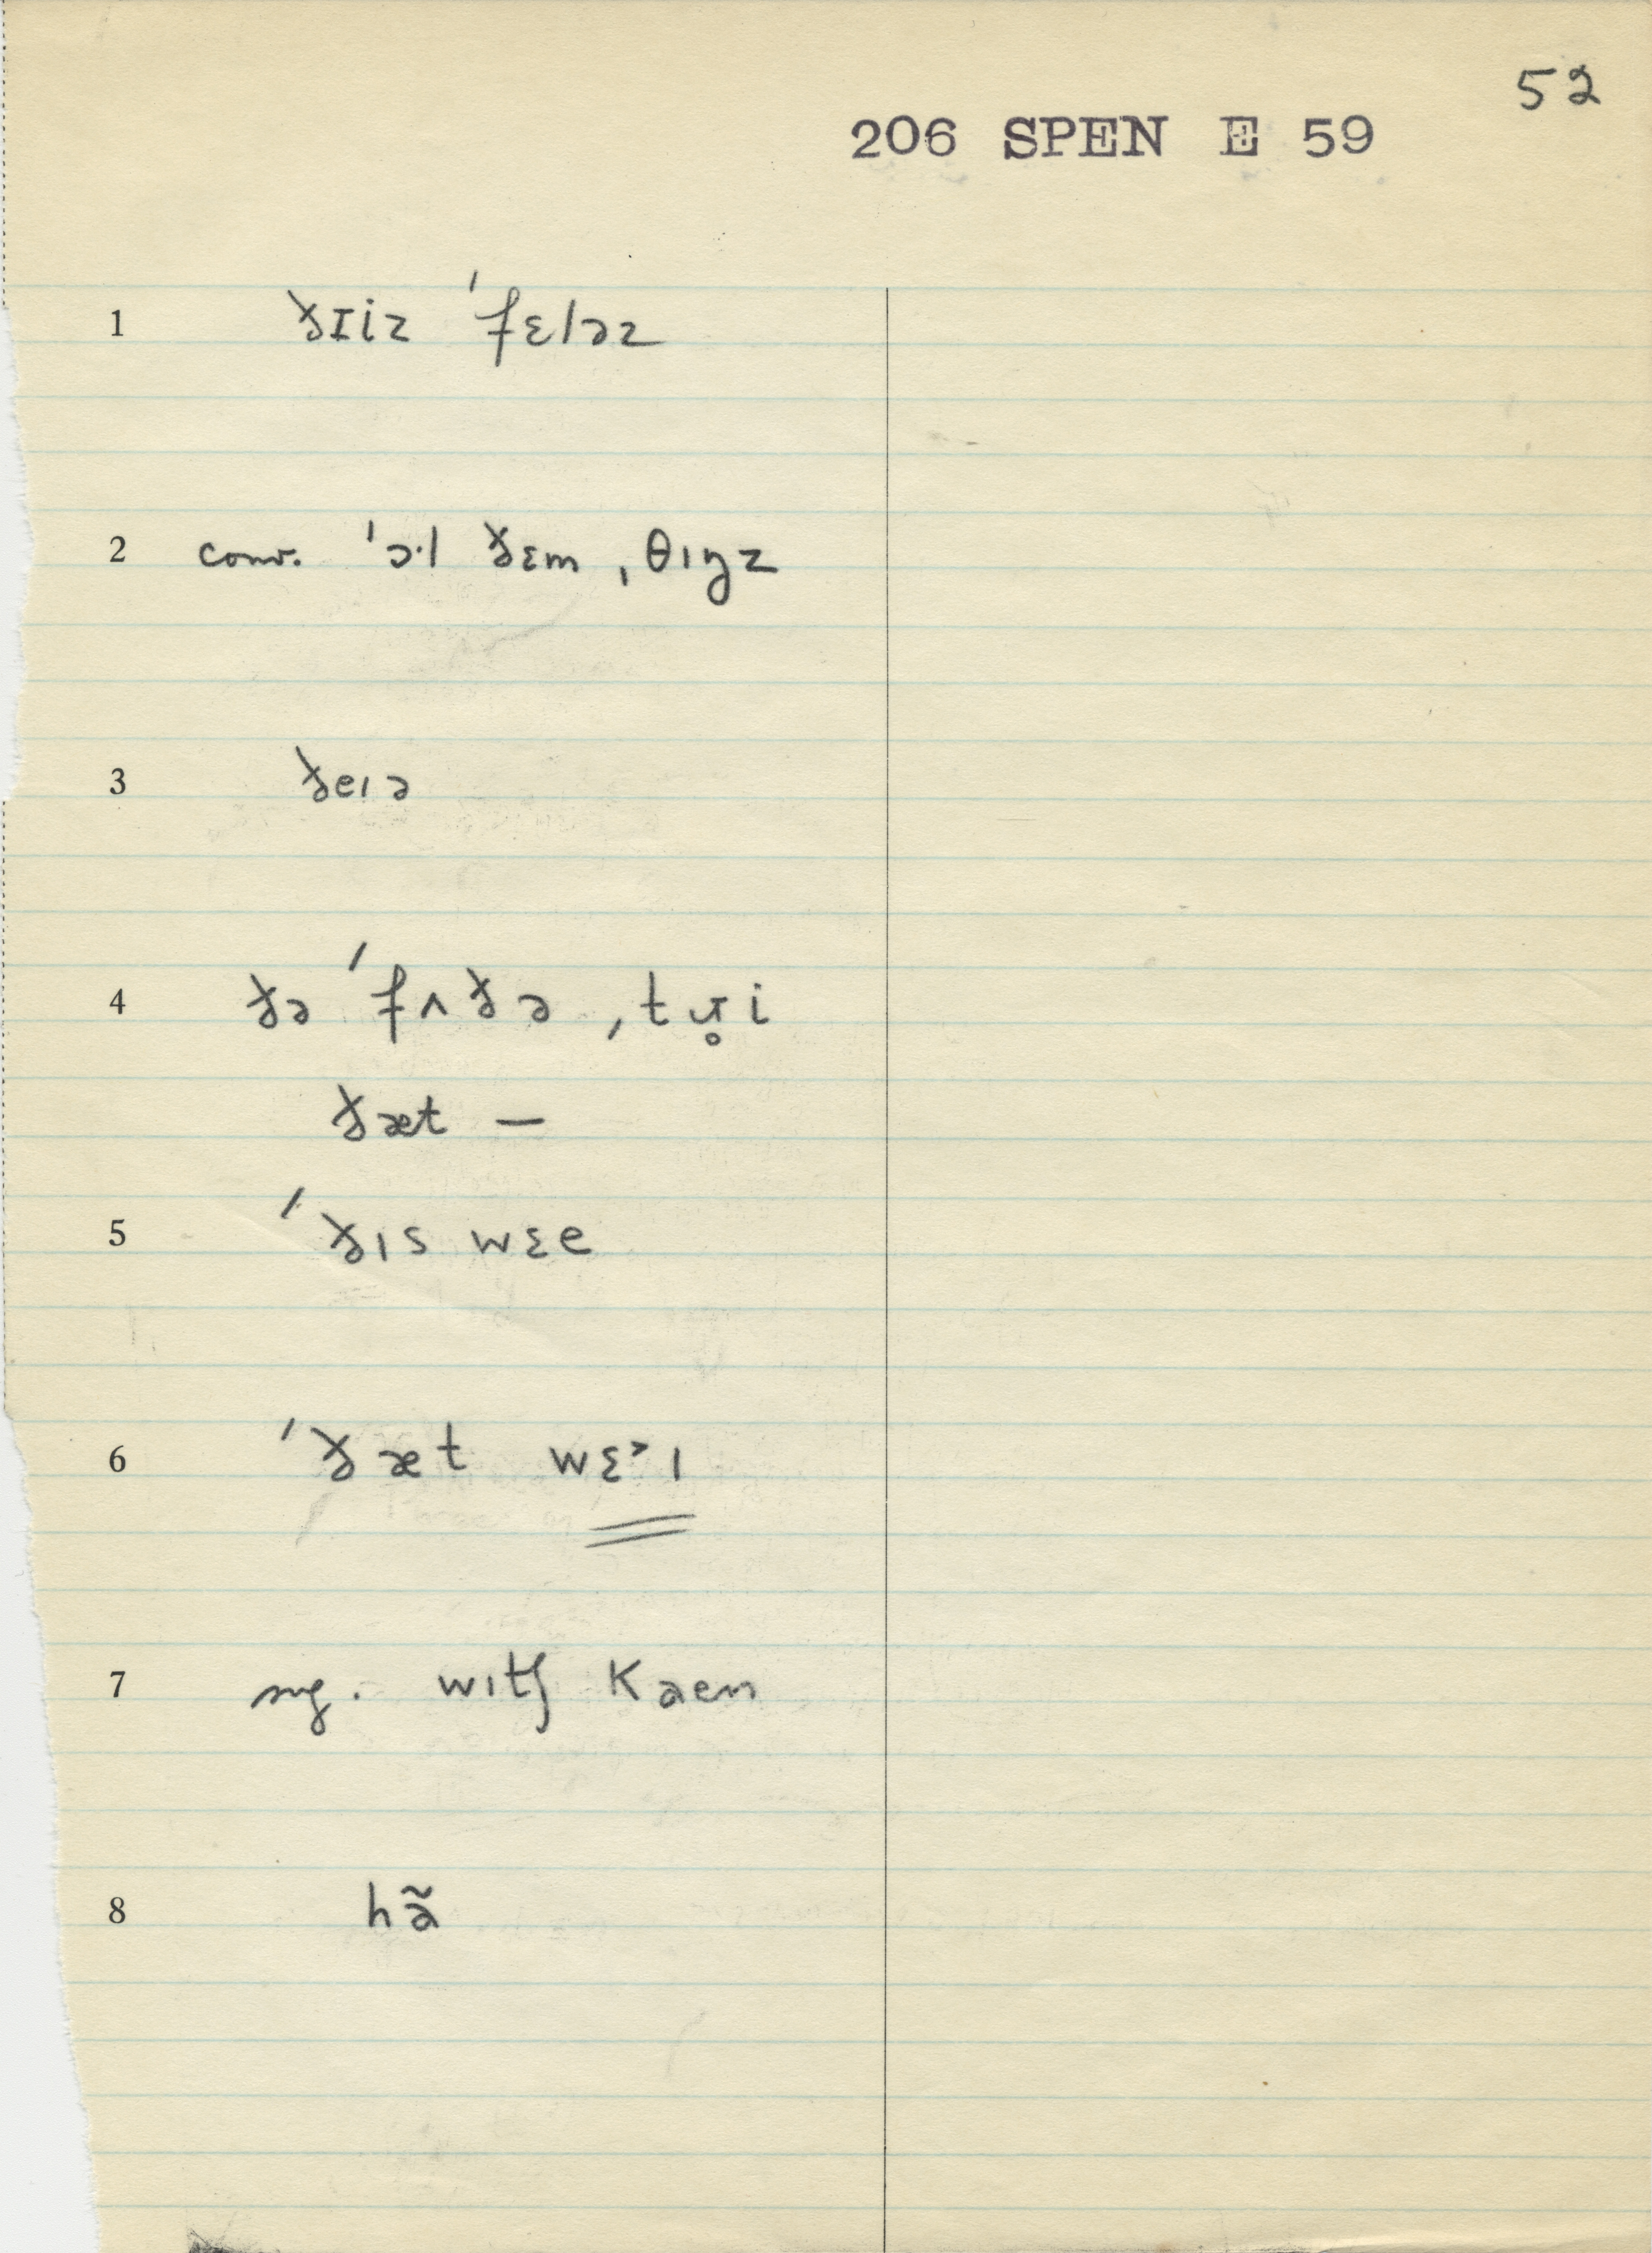 52
206 SPEN E 59
1 ðɪiz ˈfɛləz
2 conv. ˈɔ·l ðɛm ˌθɪŋz
3 ðeɪə
4 ðə ˈfʌðə ˌtr̥i
ðæt —
5 ˈðɪs wɛe
6 ˈðæt wɛ˃ɪ
7 sug. wɪtʃ Kaen
8 hã